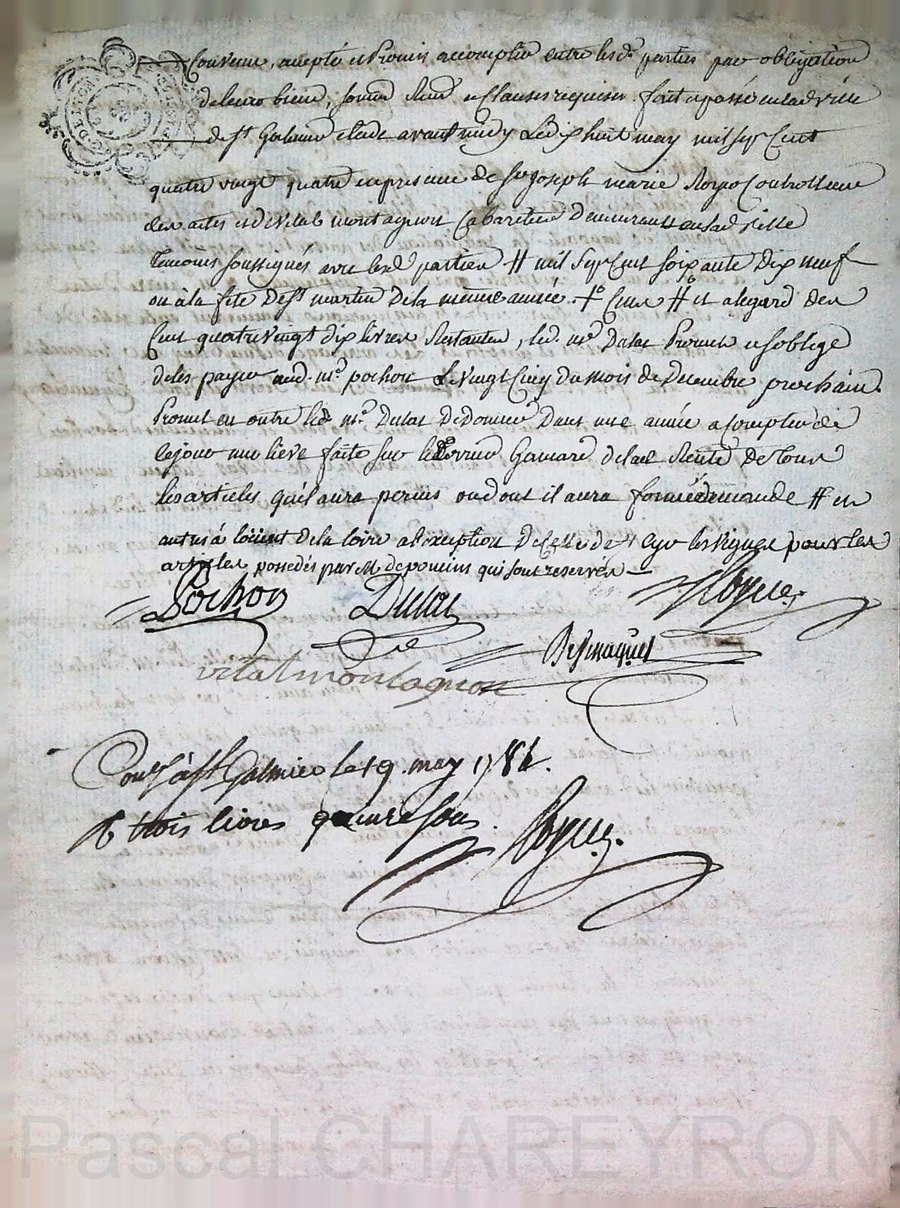 Convenu, accepté et Promis accomplir entre lesd. parties par obligation
de leurs biens, soumis. Renon. et Clauses requises. fait et passé en lad. ville
de St. Galmier etude avant midy Le dix huit may mil sept Cent
quatre vingt quatre en presence de Sr. joseph marie Royer Controlleur
des actes et de vital montagnon Cabaretier Demeurants en lad. ville
temoins soussignés avec lesd. parties # mil sept Cent soixante dix neuf
ou à la fete de st. martin de la meme année. et a legard des
Cent quatre vingt dix livres Restantes, led. mr. Dulac Promet et soblige
de les payer aud. mr. pochon Le vingt Cinq du mois de Decembre prochain.
Promet en outre led. mr. Dulac De donner Dans une année a Compter de
ce jour une lieve faite sur le terrier de lad. Rente De tous
les articles qu'il aura perçus ou dont il aura formé demande # en
à l'orient de la loire a l'exception De Celle de st. Cyr les vignes pour les
articles possedés par M. de poncins qui sont reservés
Pochon Dulac Royer
vital montagnon
Contr. à St. Galmier le 19. may 1784.
R. trois livres quinze sous. Royer.
Pascal CHAREYRON